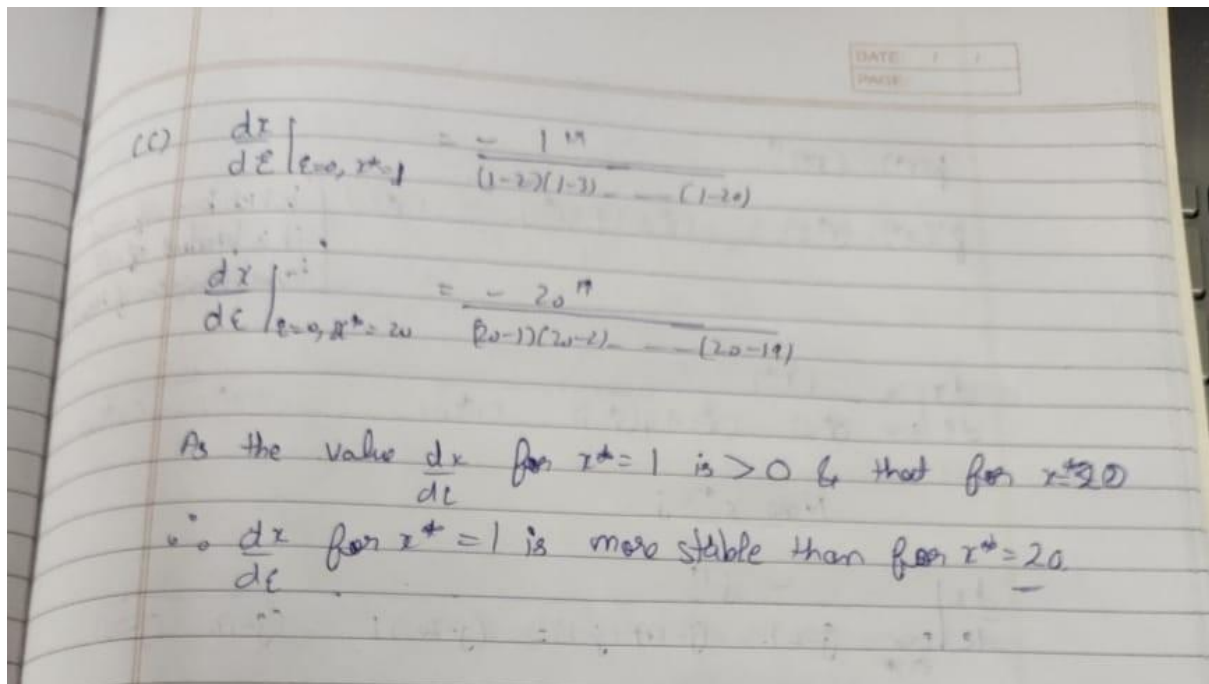 DATE / /
PAGE
(C) dx/dε |ε=0, x*=1 = - 1^19 / (1-2)(1-3) - - - (1-20)
dx/dε |ε=0, x*=20 = - 20^19 / (20-1)(20-2) - - - (20-19)
As the value dx/dε for x*=1 is >0 & that for x*=20
∴ dx/dε for x*=1 is more stable than for x*=20.